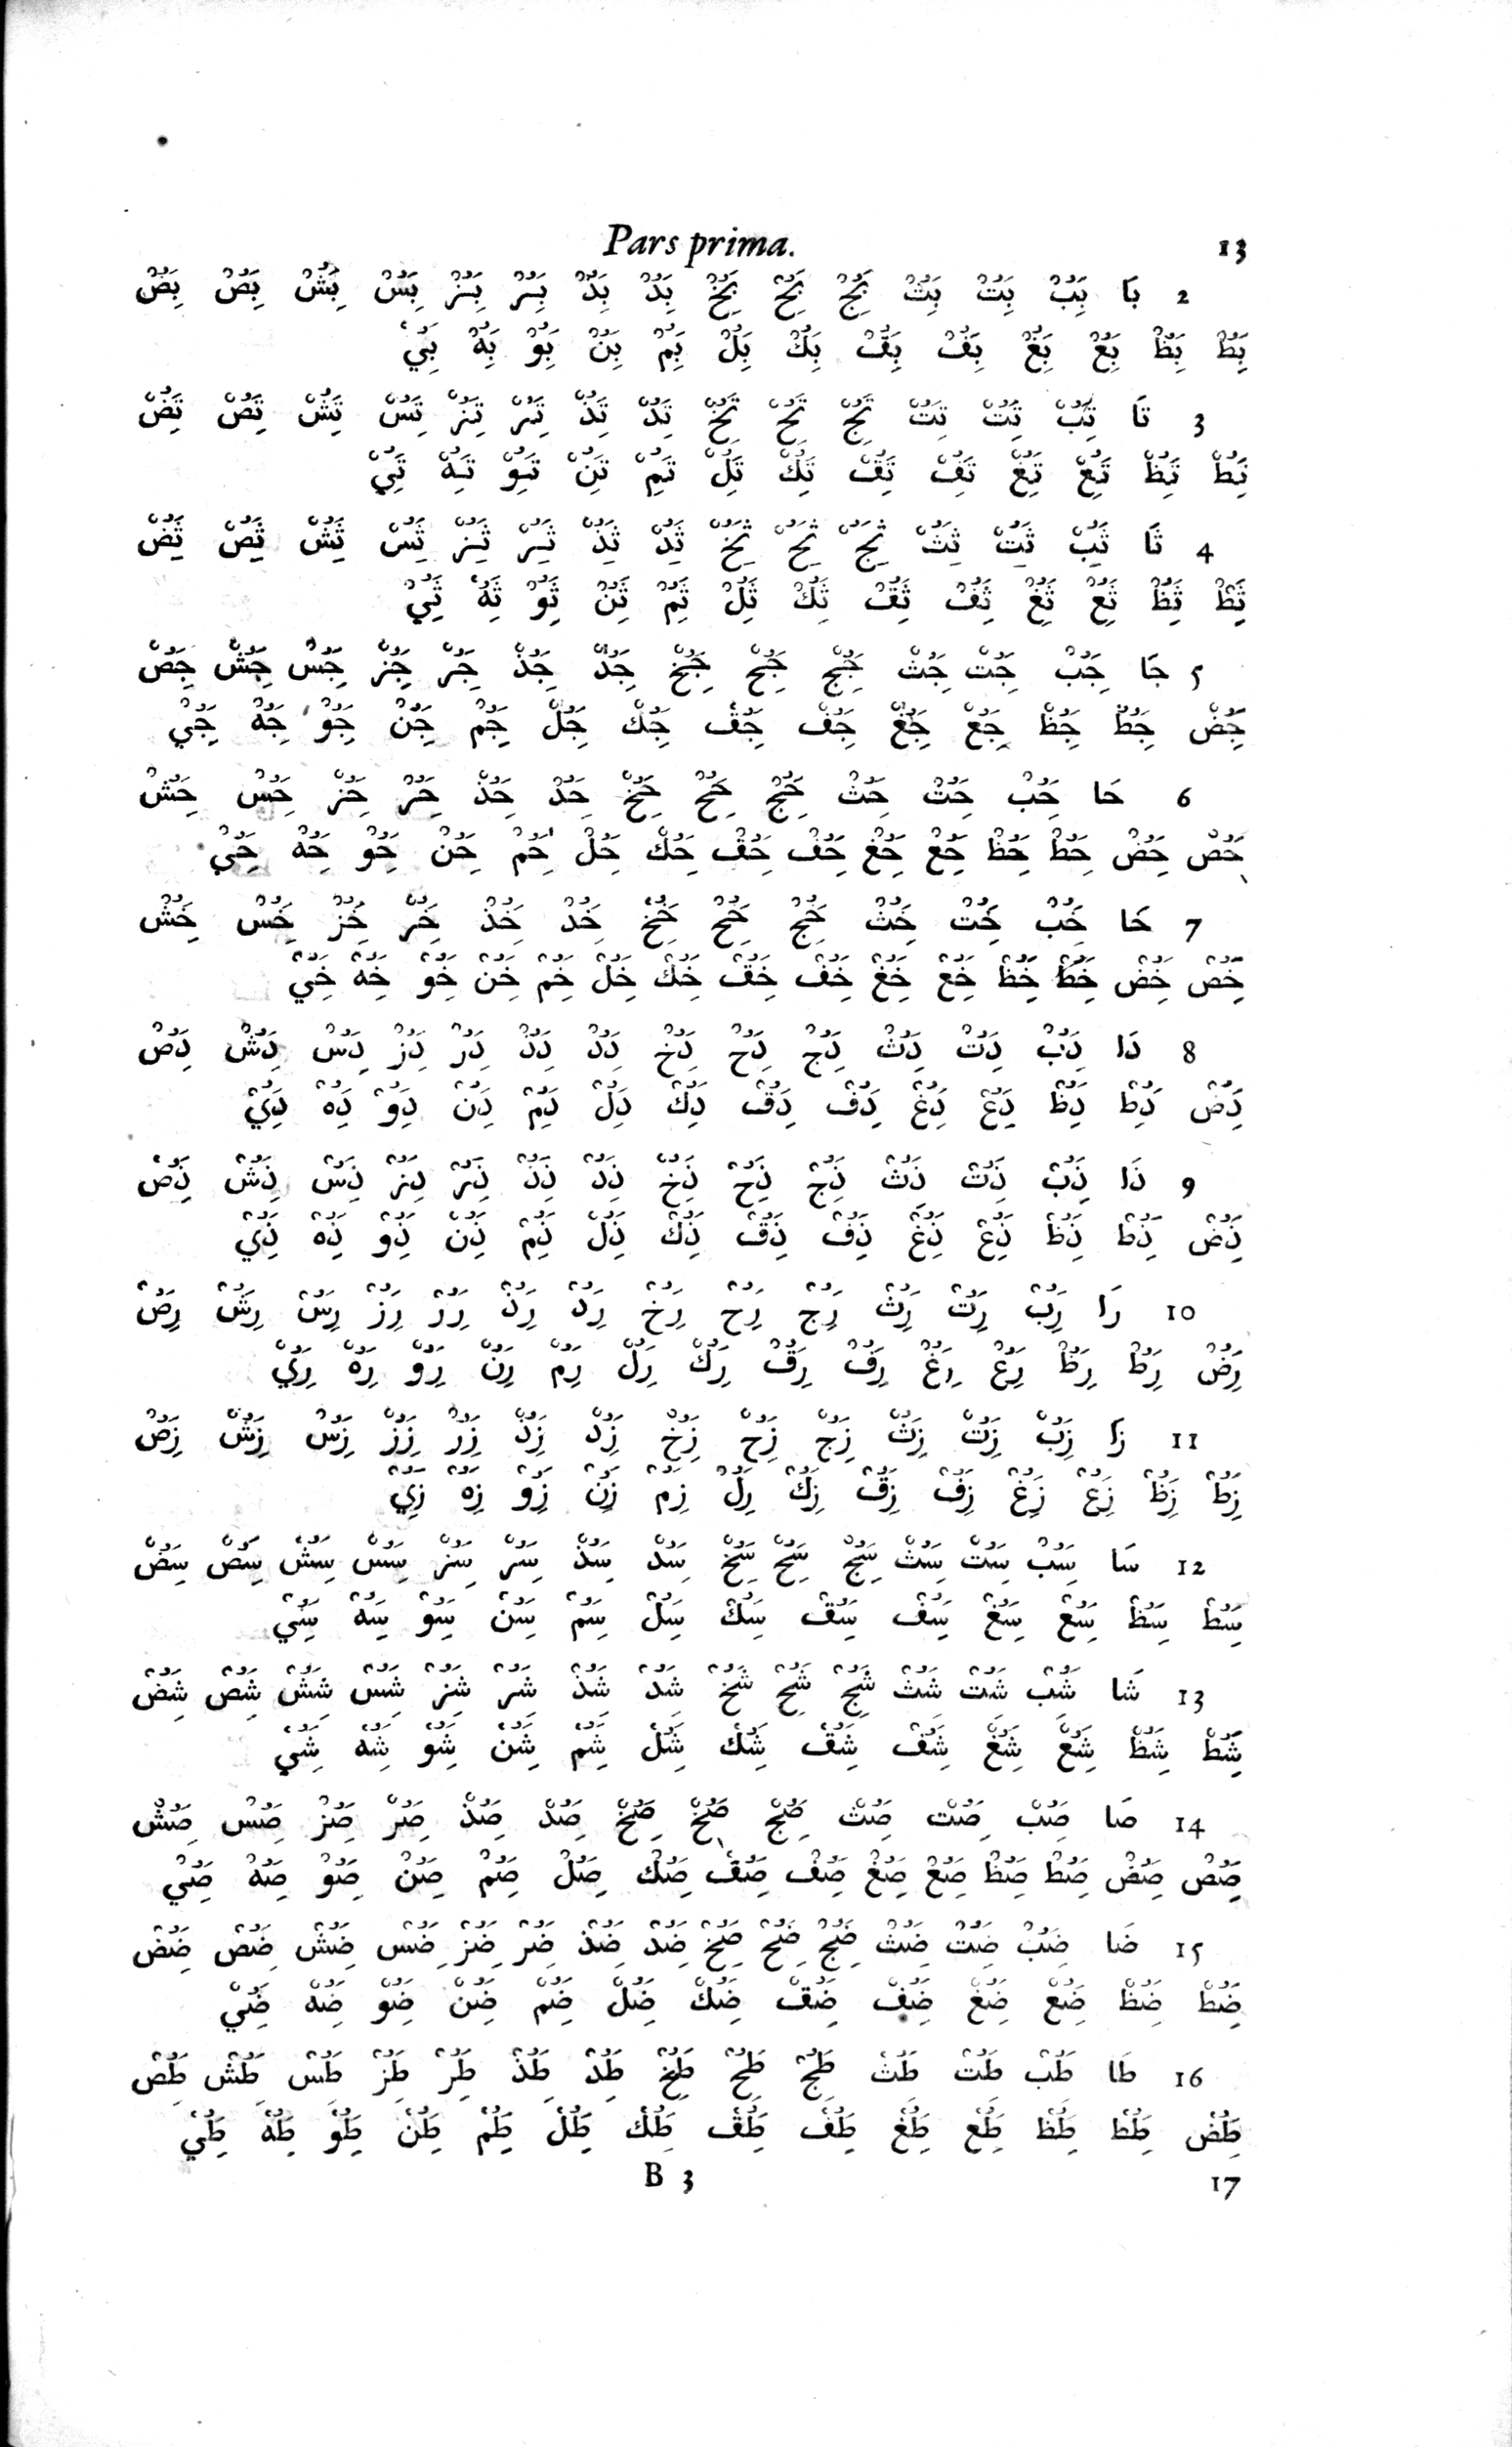 Pars prima. 13
2 با بب بت بث بج بح بخ بد بذ بر بز بس بش بص بض
بط بظ بع بغ بف بق بك بل بم بن بو به بي
3 تا تب تت تث تج تح تخ تد تذ تر تز تس تش تص تض
تط تظ تع تغ تف تق تك تل تم تن تو ته تي
4 ثا ثب ثت ثث ثج ثح ثخ ثد ثذ ثر ثز ثس ثش ثص ثض
ثط ثظ ثع ثغ ثف ثق ثك ثل ثم ثن ثو ثه ثي
5 جا جب جت جث جج جح جخ جد جذ جر جز جس جش جص
جض جط جظ جع جغ جف جق جك جل جم جن جو جه جي
6 حا حب حت حث حج حح حخ حد حذ حر حز حس حش
حص حض حط حظ حع حغ حف حق حك حل حم حن حو حه حي
7 خا خب خت خث خج خح خخ خد خذ خر خز خس خش
خص خض خط خظ خع خغ خف خق خك خل خم خن خو خه خي
8 دا دب دت دث دج دح دخ دد دذ در دز دس دش دص
دض دط دظ دع دغ دف دق دك دل دم دن دو ده دي
9 ذا ذب ذت ذث ذج ذح ذخ ذد ذذ ذر ذز ذس ذش ذص
ذض ذط ذظ ذع ذغ ذف ذق ذك ذل ذم ذن ذو ذه ذي
10 را رب رت رث رج رح رخ رد رذ رر رز رس رش رص
رض رط رظ رع رغ رف رق رك رل رم رن رو ره ري
11 زا زب زت زث زج زح زخ زد زذ زر زز زس زش زص
زط زظ زع زغ زف زق زك رل زم زن زو زه زي
12 سا سب ست سث سج سح سخ سد سذ سر سز سس سش سص سض
سط سظ سع سغ سف سق سك سل سم سن سو سه سي
13 شا شب شت شث شج شح شخ شد شذ شر شز شس شش شص شض
شط شظ شع شغ شف شق شك شل شم شن شو شه شي
14 صا صب صت صث صج صخ صخ صد صذ صر صز صس صش
صص صض صط صظ صع صغ صف صق صك صل صم صن صو صه صي
15 ضا ضب ضت ضث ضج ضح ضخ ضد ضذ ضر ضز ضس ضش ضص ضض
ضط ضظ ضع ضغ ضف ضق ضك ضل ضم ضن ضو ضه ضي
16 طا طب طت طث طج طح طخ طد طذ طر طز طس طش طص
طض طط طظ طع طغ طف طق طك طل طم طن طو طه طي
B 3 17